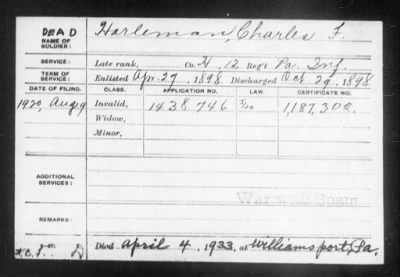 DEAD Harleman, Charles F.
NAME OF
SOLDIER:
SERVICE: Late rank, Co. H, 12 Reg't Pa. Inf.
TERM OF
SERVICE: Enlisted Apr. 27, 1898, Discharged Oct. 29, 1898
DATE OF FILING. CLASS. APPLICATION NO. LAW. CERTIFICATE NO.
1920, Aug 9 Invalid, 1438746 1,187,302.
Widow,
Minor,
ADDITIONAL
SERVICES:
War with Spain
REMARKS:
Died April 4, 1933, at Williamsport, Pa.